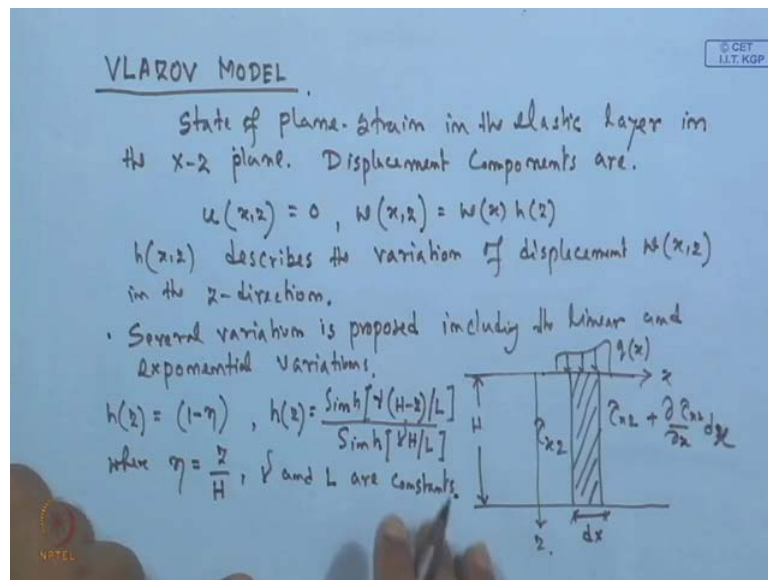 © CET
I.I.T. KGP
VLAZOV MODEL
State of plane-strain in the elastic layer in
the x-z plane. Displacement Components are.
u(x,z) = 0 , w(x,z) = w(x) h(z)
h(x,z) describes the variation of displacement w(x,z)
in the z-direction.
• Several variation is proposed including the linear and
exponential variations.
h(z) = (1-η) , h(z) = Sinh[γ(H-z)/L] / Sinh[γH/L]
where η = z/H , γ and L are constants.
q(x)
x
H
τxz
τxz + ∂τxz/∂x dx
z.
dx
NPTEL